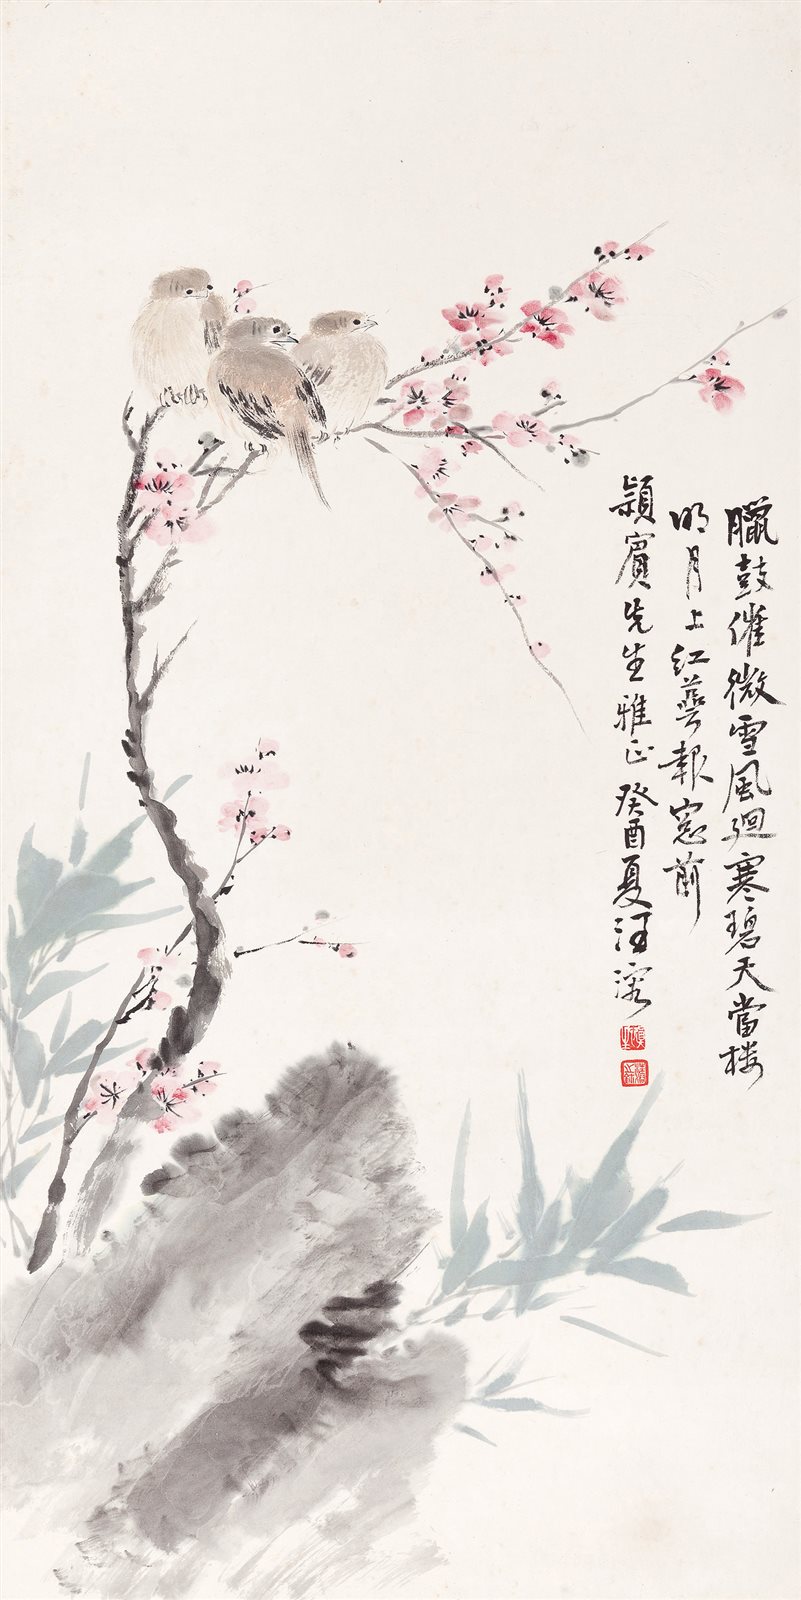 臘鼓催微雪風迴寒碧天當樓
明月上紅萼報窓前
穎賓先生雅正癸酉夏汪溶